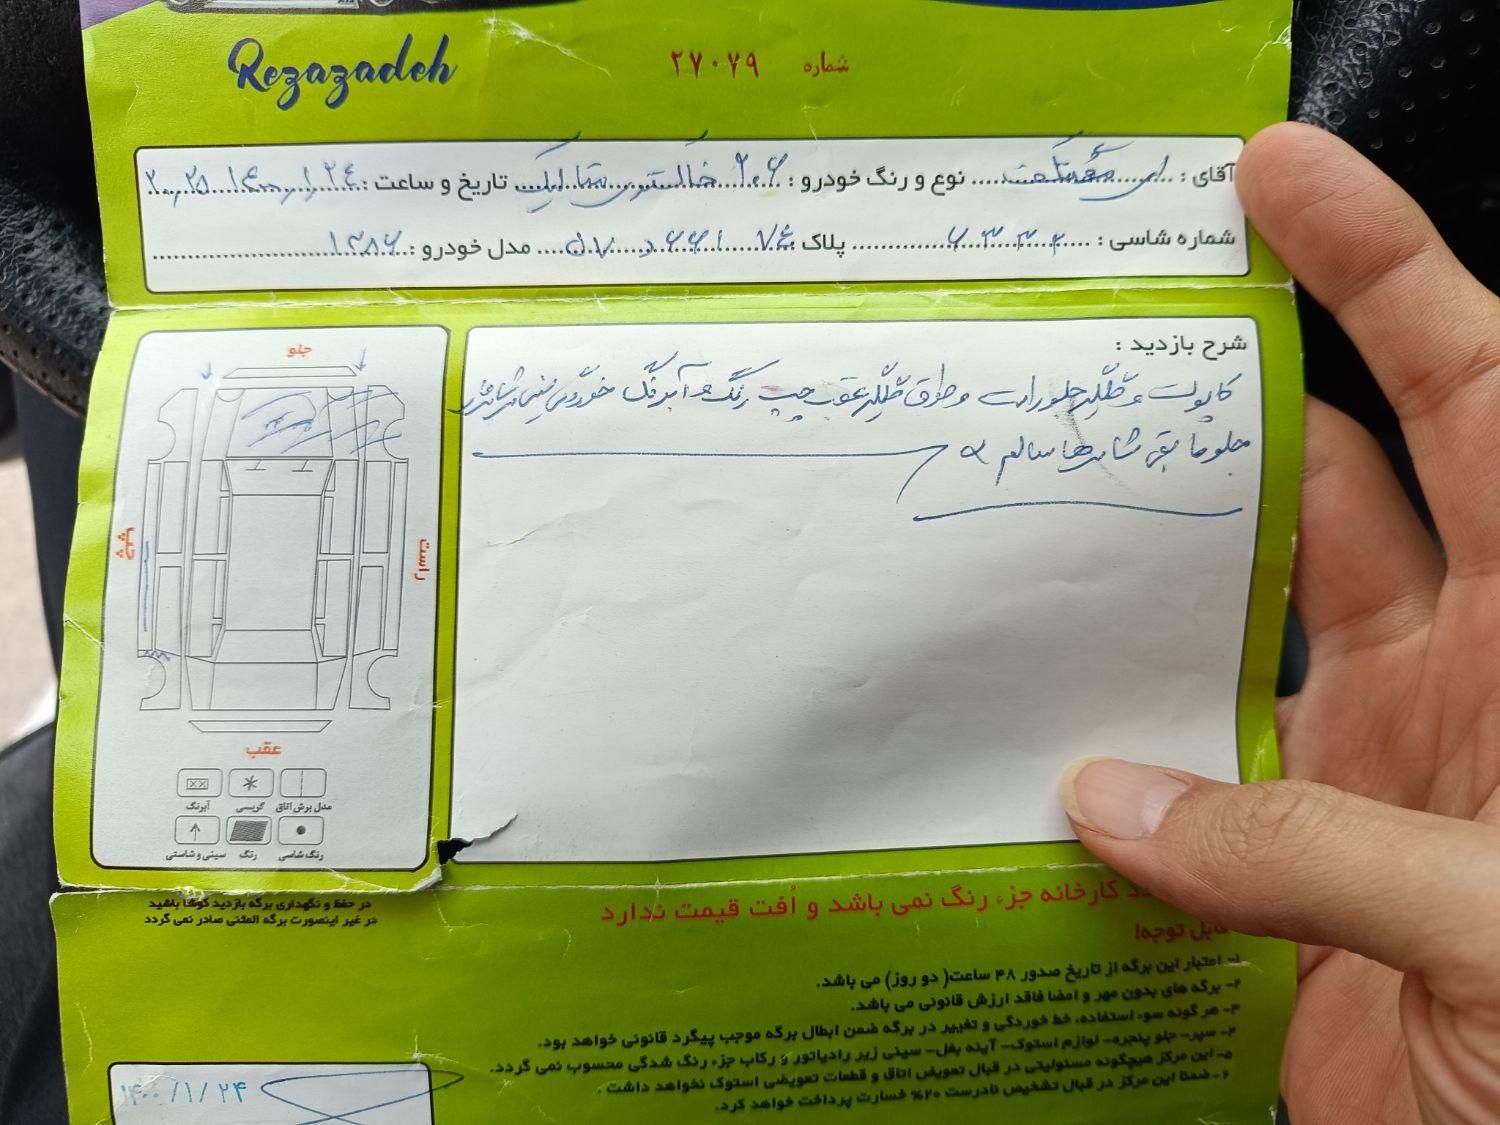 Rezazadeh
شماره ۲۷۰۷۹
آقای : نوع و رنگ خودرو : ۲۰۶ خاکستری متالیک تاریخ و ساعت : ۱۴۰۰/۱/۲۴
شماره شاسی : پلاک : مدل خودرو : ۱۳۸۶
شرح بازدید :
کاپوت و گلگیر جلو راست و طوق گلگیر عقب چپ رنگ و آبرنگ خوردگی سینی
جلو ما بقی شاسی‌ها سالم
جلو
چپ
راست
عقب
مدل برش اتاق گریسی آبرنگ
رنگ شاسی رنگ سینی و شاستی
در حفظ و نگهداری برگه بازدید کوشا باشید
در غیر اینصورت برگه المثنی صادر نمی گردد
کارخانه جزء رنگ نمی باشد و اُفت قیمت ندارد
قابل توجه!
۱- اعتبار این برگه از تاریخ صدور ۴۸ ساعت( دو روز) می باشد.
۲- برگه های بدون مهر و امضا فاقد ارزش قانونی می باشد.
۳- هر گونه سوء استفاده، خط خوردگی و تغییر در برگه ضمن ابطال برگه موجب پیگرد قانونی خواهد بود.
۴- سپر- جلو پنجره- لوازم استوک- آینه بغل- سینی زیر رادیاتور و رکاب جزء رنگ شدگی محسوب نمی گردد.
۵- این مرکز هیچگونه مسئولیتی در قبال تعویض اتاق و قطعات تعویضی استوک نخواهد داشت .
۶- ضمنا این مرکز در قبال تشخیص نادرست ۲۰% خسارت پرداخت خواهد کرد.
۱۴۰۰/۱/۲۴